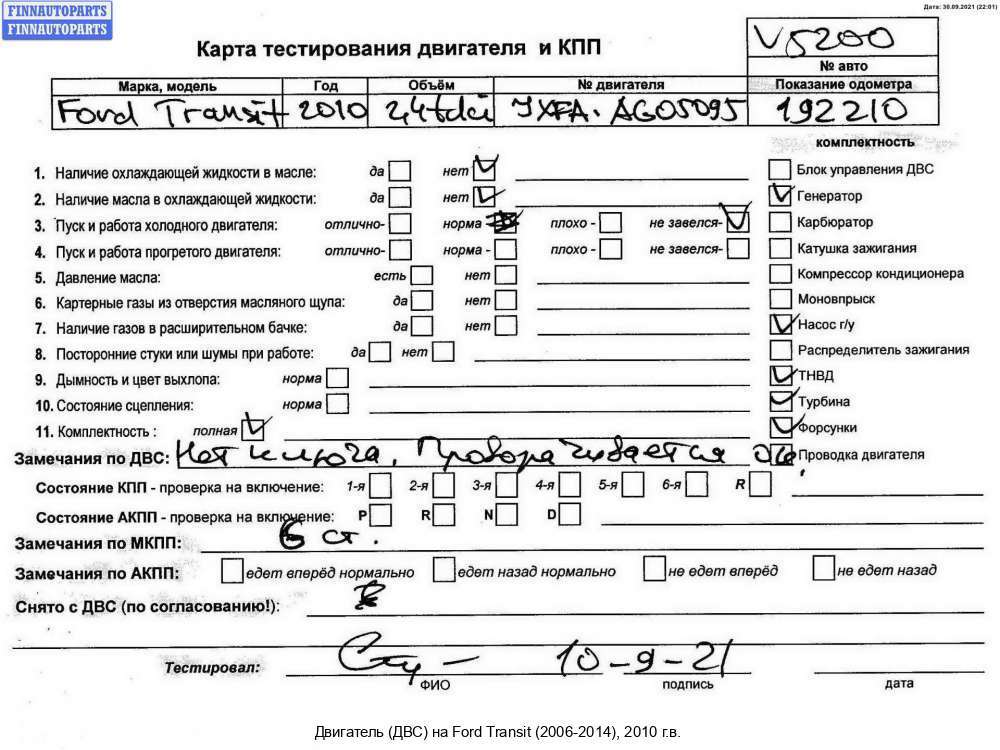 FINNAUTOPARTS
FINNAUTOPARTS
Дата: 30.09.2021 (22:01)
Карта тестирования двигателя и КПП
V5200
№ авто
Марка, модель Год Объём № двигателя Показание одометра
Ford Transit 2010 2,4tdci JXFA. AG05095 192210
комплектность
1. Наличие охлаждающей жидкости в масле: да нет Блок управления ДВС
2. Наличие масла в охлаждающей жидкости: да нет Генератор
3. Пуск и работа холодного двигателя: отлично- норма - плохо - не завелся- Карбюратор
4. Пуск и работа прогретого двигателя: отлично- норма - плохо - не завелся- Катушка зажигания
5. Давление масла: есть нет Компрессор кондиционера
6. Картерные газы из отверстия масляного щупа: да нет Моновпрыск
7. Наличие газов в расширительном бачке: да нет Насос г/у
8. Посторонние стуки или шумы при работе: да нет Распределитель зажигания
9. Дымность и цвет выхлопа: норма ТНВД
10. Состояние сцепления: норма Турбина
11. Комплектность : полная Форсунки
Замечания по ДВС: Нет ключа. Проворачивается Проводка двигателя
Состояние КПП - проверка на включение: 1-я 2-я 3-я 4-я 5-я 6-я R
Состояние АКПП - проверка на включение: P R N D
Замечания по МКПП: 6 ст.
Замечания по АКПП: едет вперёд нормально едет назад нормально не едет вперёд не едет назад
Снято с ДВС (по согласованию!):
Тестировал: 10-9-21
ФИО подпись дата
Двигатель (ДВС) на Ford Transit (2006-2014), 2010 г.в.